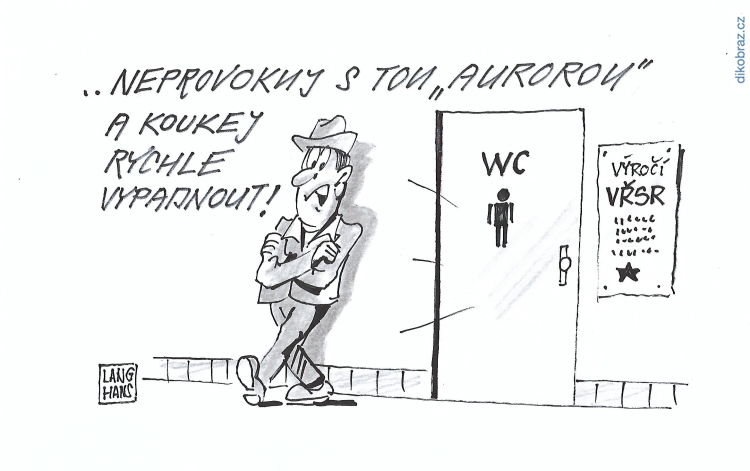 ..NEPROVOKUJ S TOU „AUROROU"
A KOUKEJ
RYCHLE
VYPADNOUT!
WC
VÝROČÍ
VŘSR
LANG
HANS
dikobraz.cz